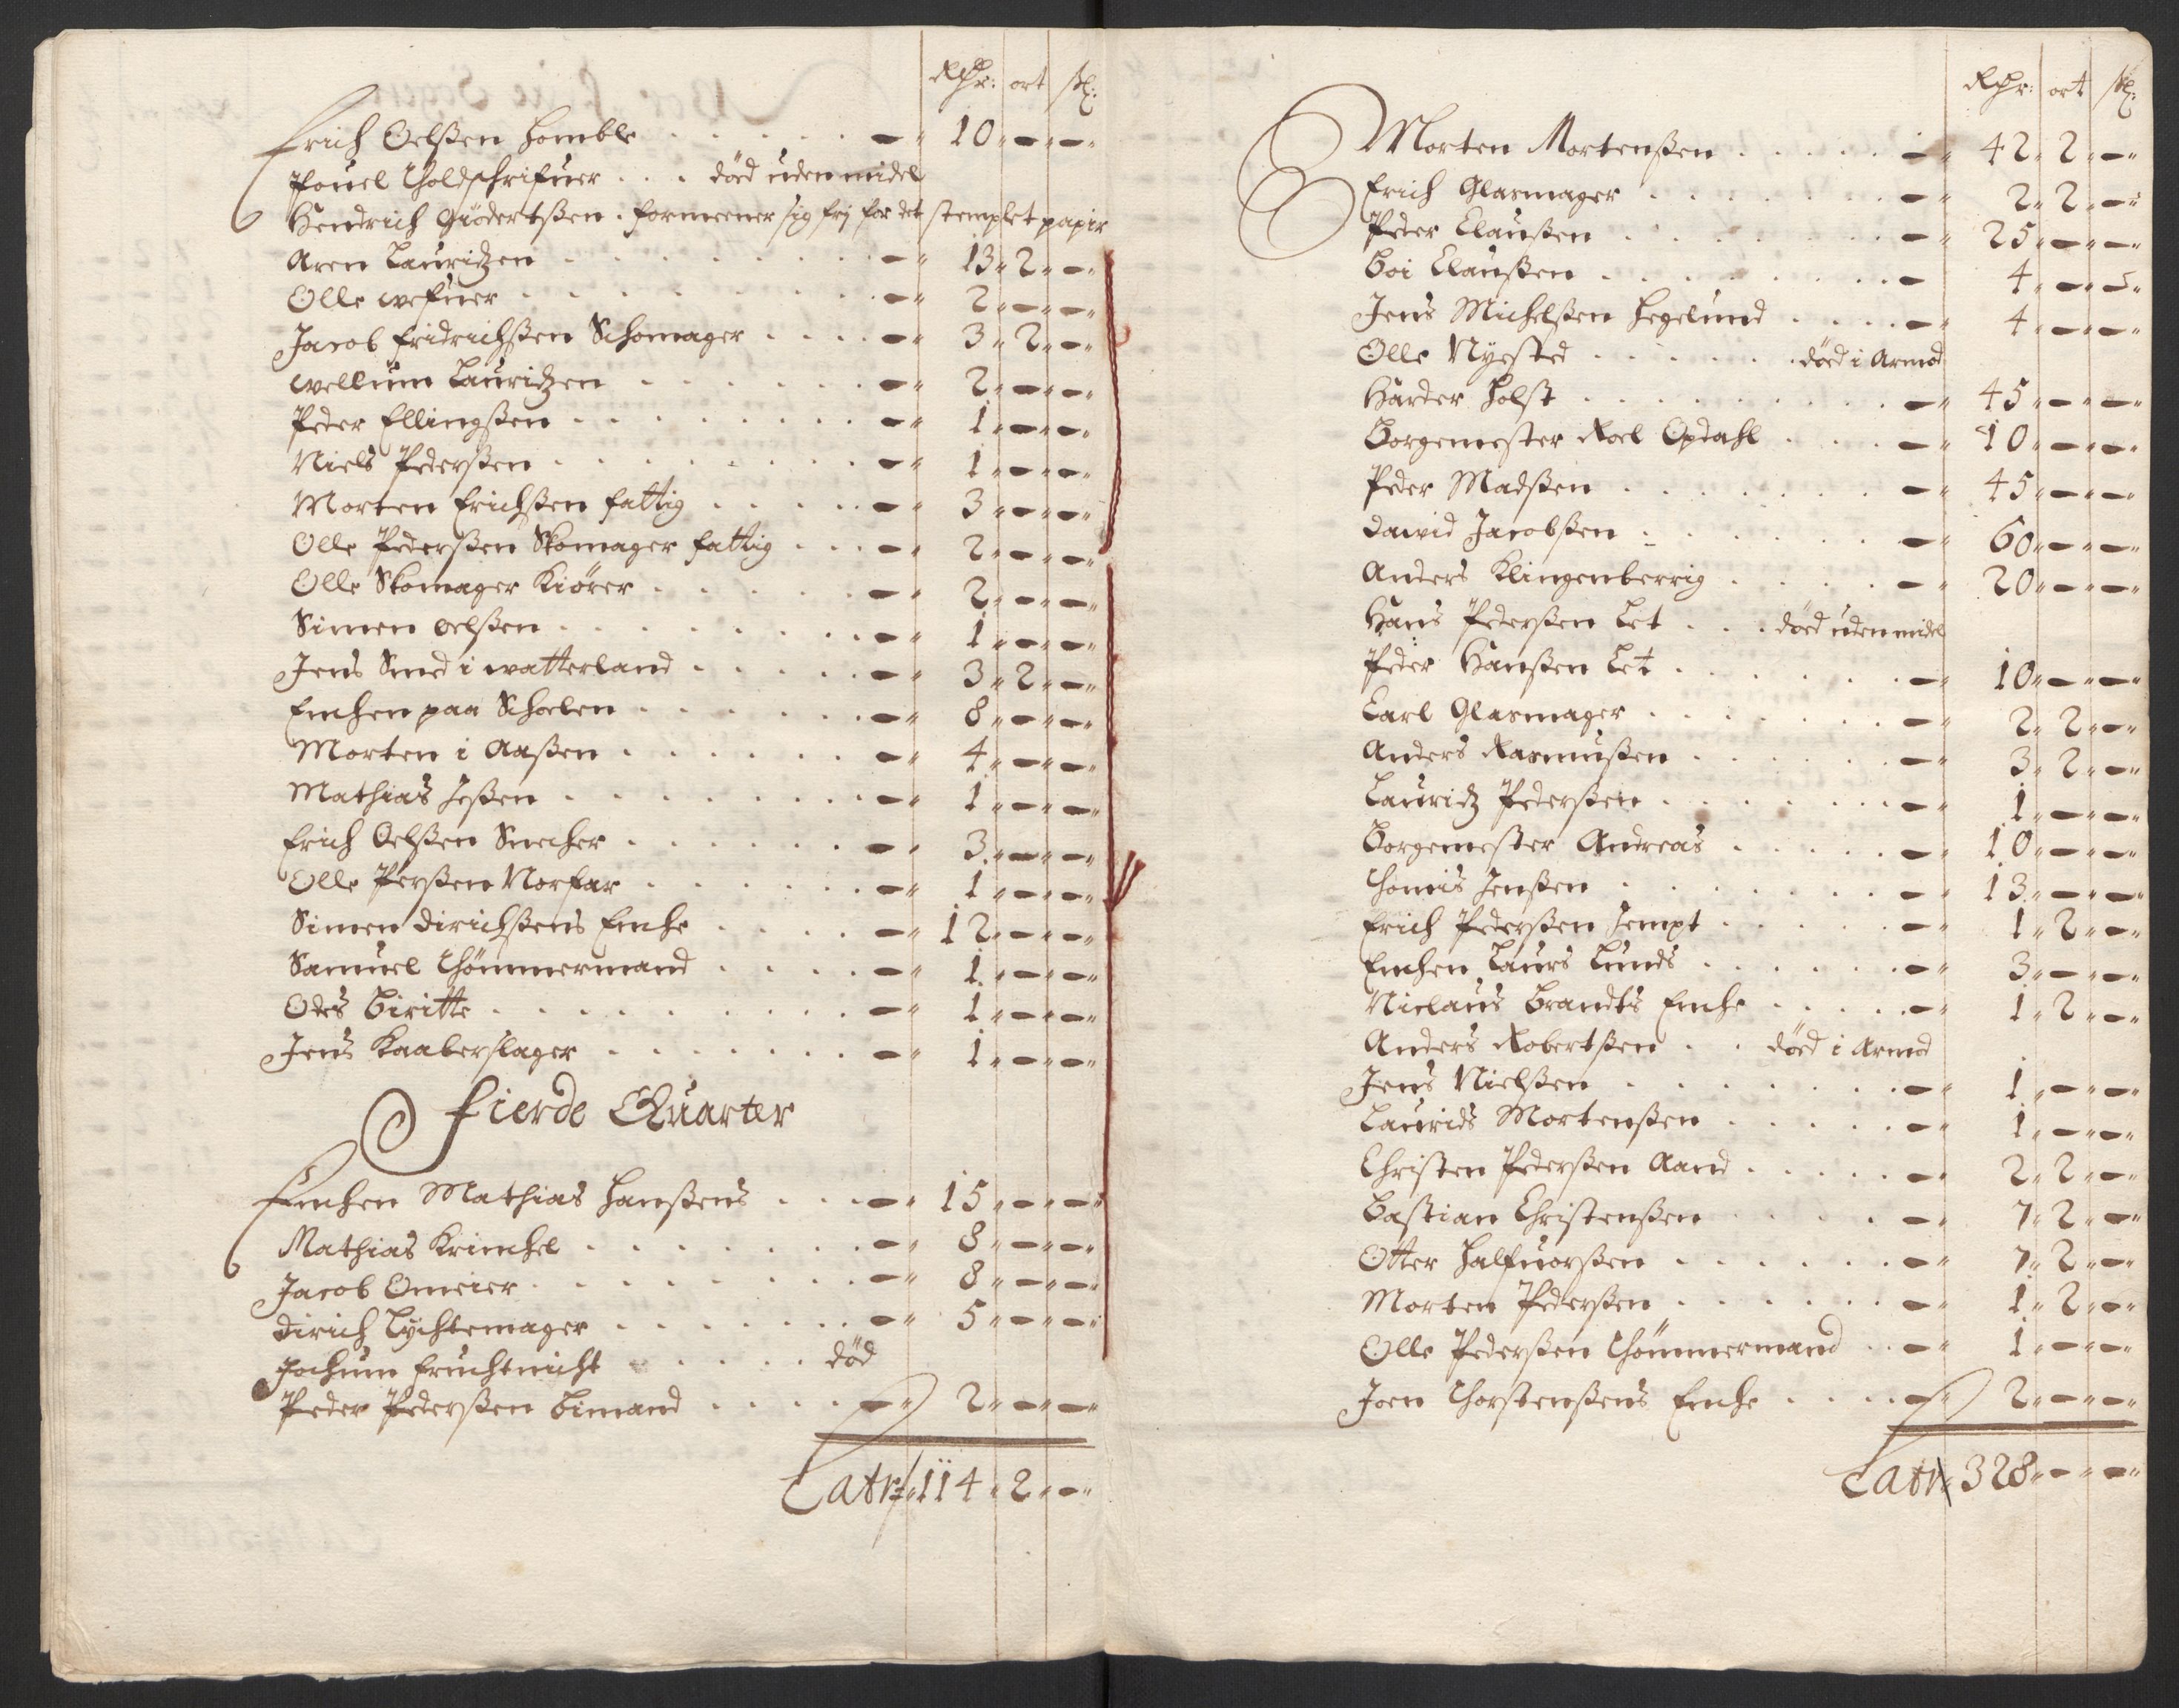 Rdr: ort sk:
Erich Oelsßen Homble . . . . . - 10 - -
Pouel Tholdschrifuer . . . död uden midel
Hendrich Giödertsßen . formeener sig frj for det stemplet papir
Aren Lauridzen . . . . . - 13 2 -
Olle wefuer . . . . . - 2 - -
Jacob Fridrichsßen Schomager . . . . - 3 2 -
wellum Lauridzen . . . . . - 2 - -
Peder Ellingsßen . . . . . - 1 - -
Niels Pedersßen . . . . . - 1 - -
Morten Erichsßen fattig . . . . - 3 - -
Olle Pedersßen Skomager fattig . . . - 2 - -
Olle Skomager Kiörer . . . . . - 2 - -
Simen oelsßen . . . . . - 1 - -
Jens Smed i watterland . . . . . - 3 2 -
Enchen paa Scholen . . . . . - 8 - -
Morten i Aaßen . . . . . - 4 - -
Mathias Jeßen . . . . . - 1 - -
Erich Oelsßen Snecher . . . . . - 3 - -
Olle Persßen Norfar . . . . . - 1 - -
Simen Dirichsßens Enche . . . . - 12 - -
Samuel Thömmermand . . . . - 1 - -
Odes Biritte . . . . . - 1 - -
Jens Kaaberslager . . . . . - 1 - -
Fierde Quarter
Enchen Mathias Hansßens . . . - 15 - -
Mathias Krinchel . . . . . - 8 - -
Jacob Omeier . . . . . - 8 - -
Dirich Lychtemager . . . . . - 5 - -
Jochum Fruchtnicht . . . . . död
Peder Pedersßen Bimand . . . . - 2 - -
Latr 114 2 -
Rdr: ort sk:
Morten Mortensßen . . . . . - 42 2 -
Erich Glasmager . . . . . - 2 2 -
Peder Clausßen . . . . . - 25 - -
Boi Clausßen . . . . . - 4 - -
Jens Michelsßen Hegelund . . . . - 4 - -
Olle Nyested . . . . . döed i Armod
Harder Holst . . . . . - 45 - -
Borgemester Roel Opdahl . . . - 10 - -
Peder Madsßen . . . . . - 45 - -
Dawid Jacobsßen . . . . . - 60 - -
Anders Klingenberrig . . . . - 20 - -
Hans Pedersßen Let . . . döed uden midel
Peder Hansßen Let . . . . . - 10 - -
Carl Glasmager . . . . . - 2 2 -
Anders Rasmusßen . . . . . - 3 2 -
Lauridz Pedersßen . . . . . - 1 - -
Borgemester Andreas . . . . . - 10 - -
Thomis Jensßen . . . . . - 13 - -
Erich Pedersßen Jempt . . . . . - 1 2 -
Enchen Laurs Lunds . . . . . - 3 - -
Niclaus Brandts Enche . . . . - 1 2 -
Anders Robertsßen . . döed i Armod
Jens Nielsßen . . . . . - 1 - -
Laurids Mortensßen . . . . . - 1 - -
Christen Pedersßen Aand . . . . . - 2 2 -
Bastian Christensßen . . . . - 7 2 -
Otter Halfuorsßen . . . . . - 7 2 -
Morten Pedersßen . . . . . - 1 2 -
Olle Pedersßen Thömmermand . . - 1 - -
Joen Thorstensßens Enche . . . . - 2 - -
Latr 328 - -